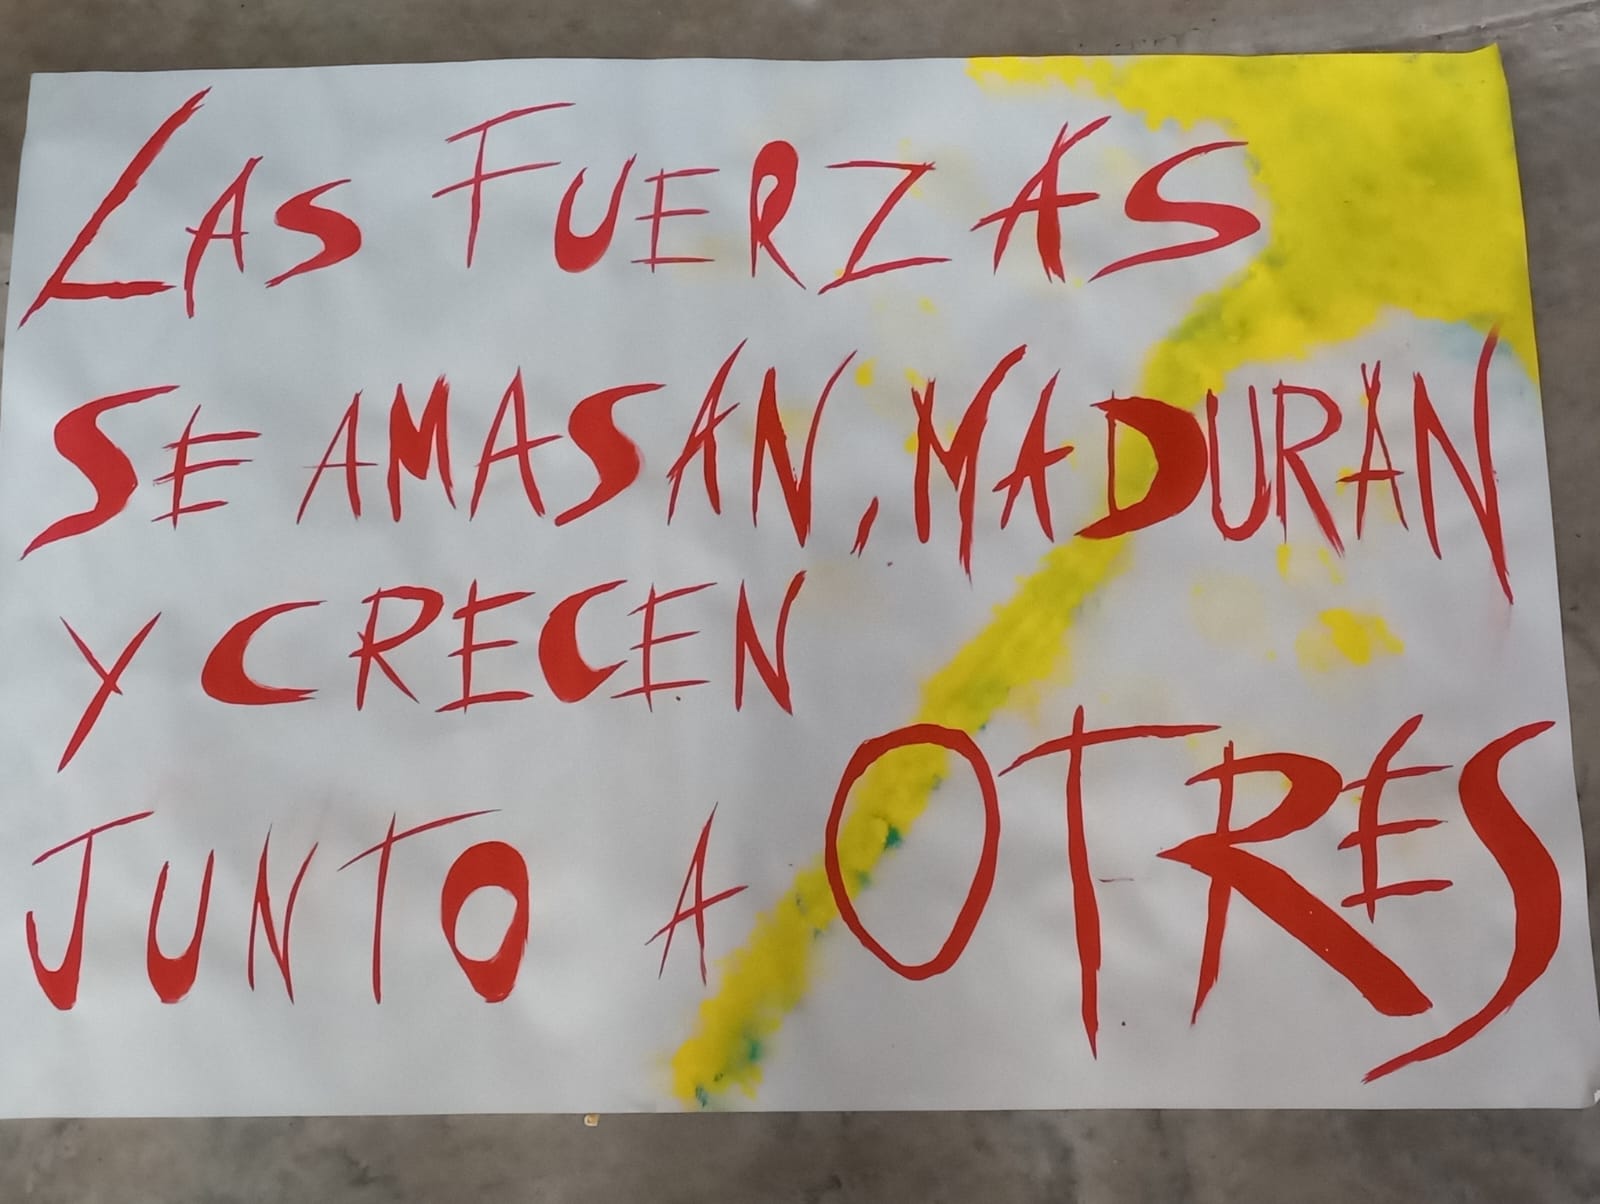 LAS FUERZAS
SE AMASAN, MADURAN
Y CRECEN
JUNTO A OTRES